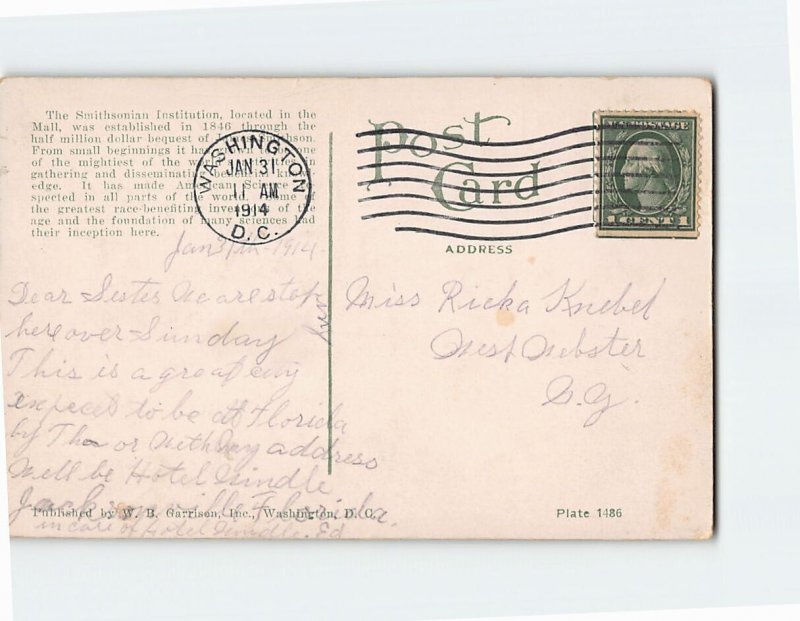 The Smithsonian Institution, located in the
Mall, was established in 1846 through the
half million dollar bequest of Smithson.
From small beginnings it has one
of the mightiest of the in
gathering and disseminating knowl-
edge. It has made American Science
spected in all parts of the world. Some of
the greatest race-benefiting inventions of the
age and the foundation of many sciences had
their inception here.
WASHINGTON
JAN 31
11 AM
1914
D.C.
Jan 31th 1914
Dear Sister We are stop
ping
here over Sunday
This is a great city
expect to be at Florida
by The or Weth My address
Will be Hotel Windle
Jacksonville Florida.
in care of Hotel Windle. Ed
Published by W. B. Garrison, Inc., Washington, D. C.
Post
Card
ADDRESS
U.S. POSTAGE
1 CENT 1
Miss Ricka Knebel
West Webster
N.Y.
Plate 1486